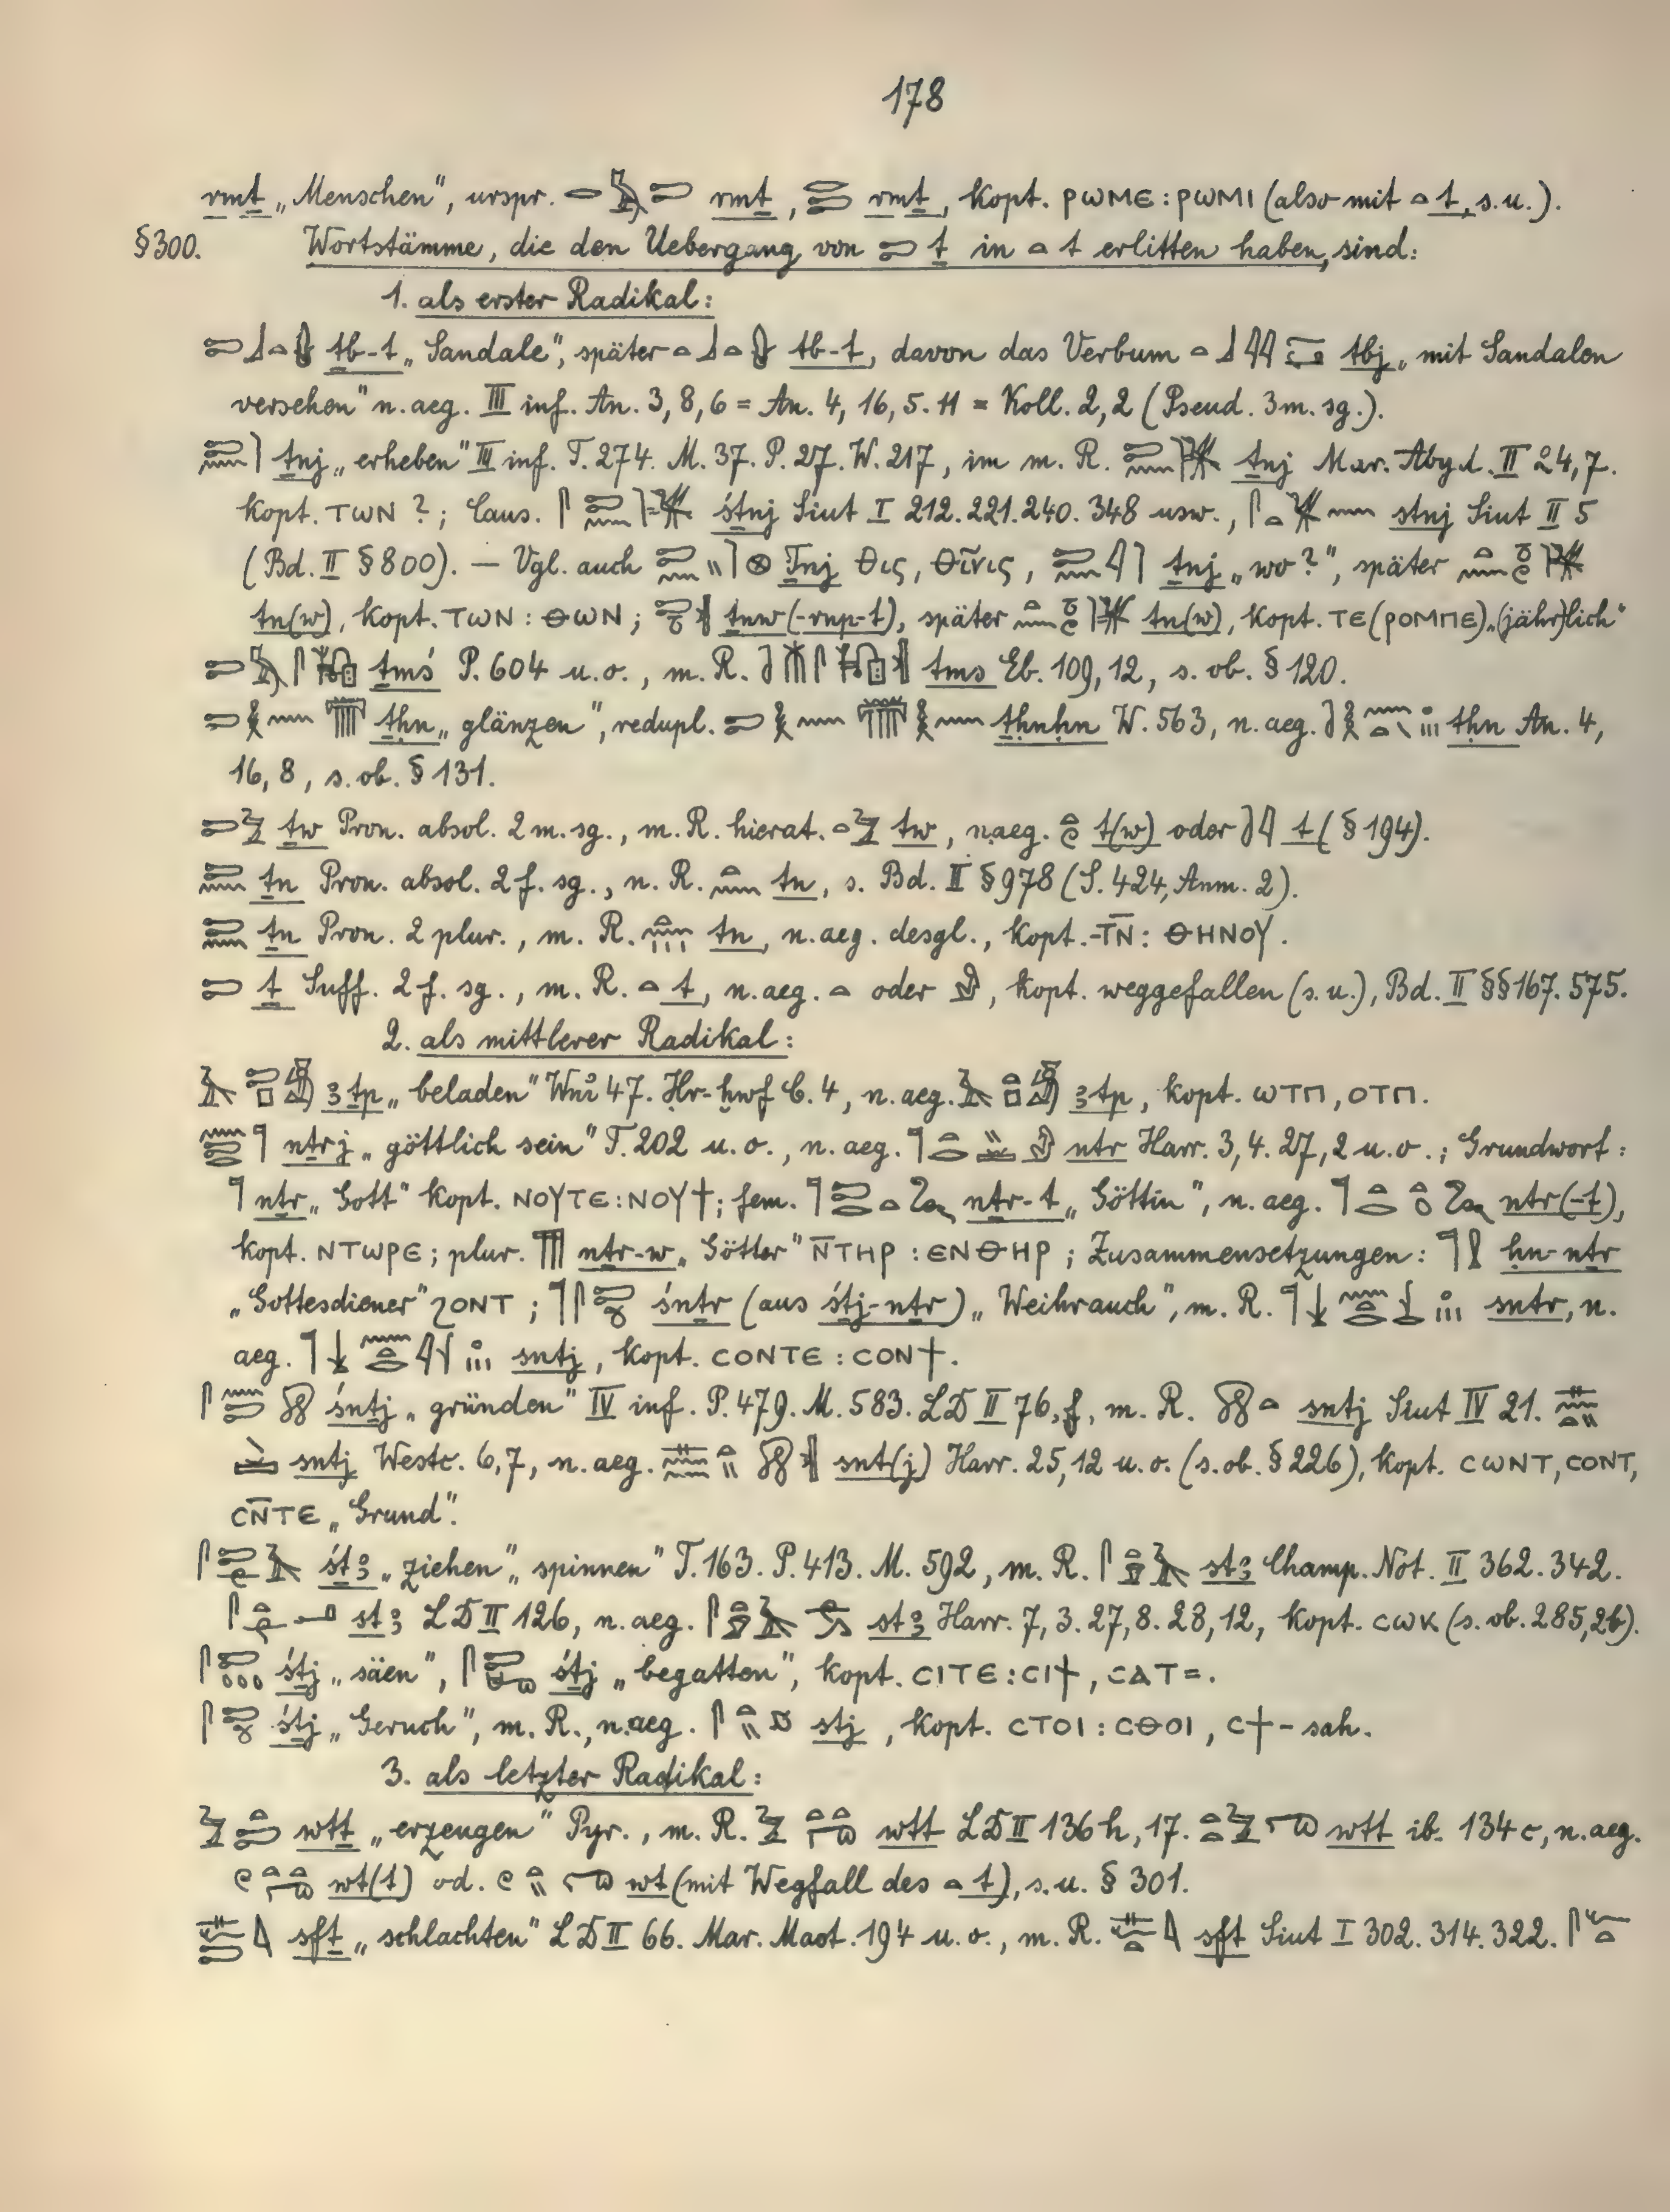 178
rmṯ „Menschen", urspr. 𓂋𓅓𓍿 rmṯ, 𓂋𓍿 rmṯ, kopt. ⲣⲱⲙⲉ : ⲣⲱⲙⲓ (also mit 𓏏 t, s.u.).
§300. Wortstämme, die den Uebergang von 𓍿 ṯ in 𓏏 t erlitten haben, sind:
1. als erster Radikal:
𓍿𓃀𓏏 ṯb-t „Sandale", später 𓏏𓃀𓏏 tb-t, davon das Verbum 𓏏𓃀𓇋𓇋 tbj „mit Sandalen
versehen" n.aeg. III inf. An. 3,8,6 = An. 4, 16, 5. 11 = Koll. 2,2 (Pseud. 3m. sg.).
𓍿𓈖 ṯnj „erheben" III inf. T. 274. M. 37. P. 27. W. 217, im m. R. 𓍿𓈖 ṯnj Mar. Abyd. II 24,7.
kopt. ⲧⲱⲛ ?; Caus. 𓋴𓍿𓈖 śṯnj Siut I 212. 221. 240. 348 usw., 𓋴𓏏𓈖 stnj Siut II 5
(Bd. II §800). — Vgl. auch 𓍿𓈖𓏭𓊖 Ṯnj Θις, Θῖνις, 𓍿𓈖𓇋 ṯnj „wo?", später 𓏏𓈖𓏌𓏲
tn(w), kopt. ⲧⲱⲛ : ⲑⲱⲛ; 𓍿𓏌 ṯnw(-rnp-t), später 𓏏𓈖𓏌𓏲 tn(w), kopt. ⲧⲉ(ⲣⲟⲙⲡⲉ) „(jähr)lich"
𓍿𓅓𓋴 ṯmś P. 604 u.o., m. R. tms Eb. 109, 12, s. ob. § 120.
𓍿𓎛𓈖 ṯḥn „glänzen", redupl. 𓍿𓎛𓈖𓎛𓈖 ṯḥnḥn W. 563, n. aeg. tḥn An. 4,
16, 8, s. ob. § 131.
𓍿𓅱 ṯw Pron. absol. 2 m. sg., m. R. hierat. 𓏏𓅱 tw, n.aeg. 𓏏𓏲 t(w) oder t (§ 194).
𓍿𓈖 ṯn Pron. absol. 2 f. sg., n. R. 𓏏𓈖 tn, s. Bd. II § 978 (S. 424, Anm. 2).
𓍿𓈖 ṯn Pron. 2 plur., m. R. 𓏏𓈖𓏥 tn, n. aeg. desgl., kopt. -ⲧⲛ̄ : ⲑⲏⲛⲟⲩ.
𓍿 ṯ Suff. 2 f. sg., m. R. 𓏏 t, n. aeg. 𓏏 oder 𓁐, kopt. weggefallen (s.u.), Bd. II §§ 167. 575.
2. als mittlerer Radikal:
𓄿𓍿𓊪 ꜣṯp „beladen" Wnỉ 47. Ḥr-ḫwf C. 4, n. aeg. 𓄿𓏏𓊪 ꜣtp, kopt. ⲱⲧⲡ, ⲟⲧⲡ.
𓈖𓍿𓂋𓊹 nṯrj „göttlich sein" T. 202 u. o., n. aeg. 𓊹𓏏𓂋 ntr Harr. 3, 4. 27, 2 u. o.; Grundwort:
𓊹 nṯr „Gott" kopt. ⲛⲟⲩⲧⲉ : ⲛⲟⲩϯ; fem. 𓊹𓍿𓂋𓏏 nṯr-t „Göttin", n. aeg. 𓊹𓏏𓂋 ntr(-t),
kopt. ⲛⲧⲱⲣⲉ; plur. 𓊹𓊹𓊹 nṯr-w „Götter" ⲛ̄ⲧⲏⲣ : ⲉⲛⲑⲏⲣ; Zusammensetzungen: 𓊹𓍛 ḥn-nṯr
„Gottesdiener" ϩⲟⲛⲧ; 𓊹𓋴𓍿 śnṯr (aus śṯj-nṯr) „Weihrauch", m. R. 𓊹 sntr, n.
aeg. 𓊹 sntj, kopt. ⲥⲟⲛⲧⲉ : ⲥⲟⲛϯ.
𓋴𓈖𓍿 śnṯj „gründen" IV inf. P. 479. M. 583. LD II 76, f, m. R. sntj Siut IV 21. 𓊃𓈖𓏏𓏭
sntj Westc. 6, 7, n. aeg. 𓊃𓈖𓏏𓏭 snt(j) Harr. 25, 12 u. o. (s. ob. § 226), kopt. ⲥⲱⲛⲧ, ⲥⲟⲛⲧ,
ⲥⲛ̄ⲧⲉ „Grund".
𓋴𓍿𓄿 śṯꜣ „ziehen" „spinnen" T. 163. P. 413. M. 592, m. R. 𓋴𓏏𓄿 stꜣ Champ. Not. II 362. 342.
stꜣ LD II 126, n. aeg. stꜣ Harr. 7, 3. 27, 8. 28, 12, kopt. ⲥⲱⲕ (s. ob. 285, 2b).
𓋴𓍿 śṯj „säen", 𓋴𓍿 śṯj „begatten", kopt. ⲥⲓⲧⲉ : ⲥⲓϯ, ⲥⲁⲧ=.
𓋴𓍿 śṯj „Geruch", m. R., n. aeg. 𓋴𓏏𓏭 stj, kopt. ⲥⲧⲟⲓ : ⲥⲑⲟⲓ, ⲥϯ- sah.
3. als letzter Radikal:
𓅱𓏏𓍿 wtṯ „erzeugen" Pyr., m. R. 𓅱𓏏𓏏 wtt LD II 136 h, 17. 𓏏𓏏𓅱 wtt ib. 134 c, n. aeg.
𓏲𓏏𓏏 wt(t) od. 𓏲𓏏𓏭 wt (mit Wegfall des 𓏏 t), s. u. § 301.
𓊃𓆑𓍿 sfṯ „schlachten" LD II 66. Mar. Mast. 194 u. o., m. R. 𓊃𓆑𓏏 sft Siut I 302. 314. 322. 𓋴𓆑𓏏